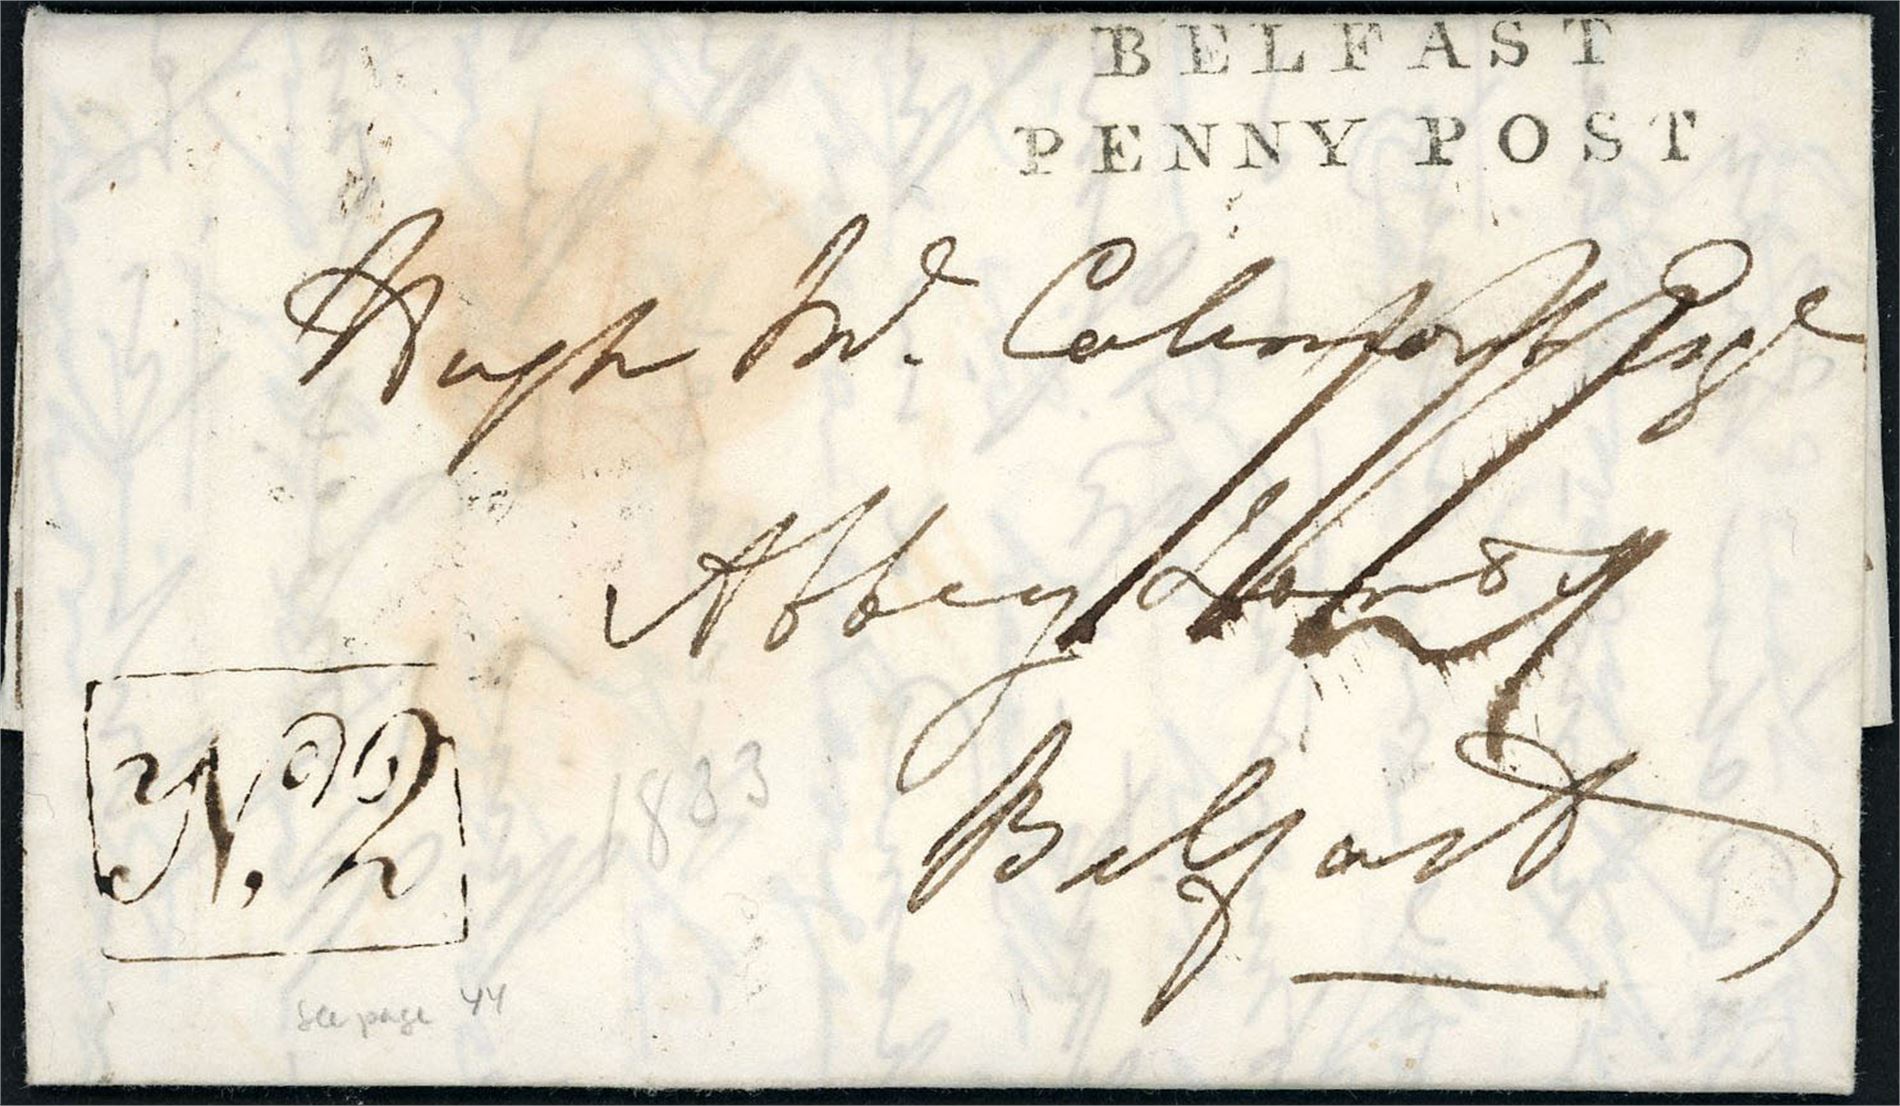 BELFAST
PENNY POST
Hugh Mc. Calmont Esqe
Abbey Lands
Belfast
No. 2
1833
See page 44